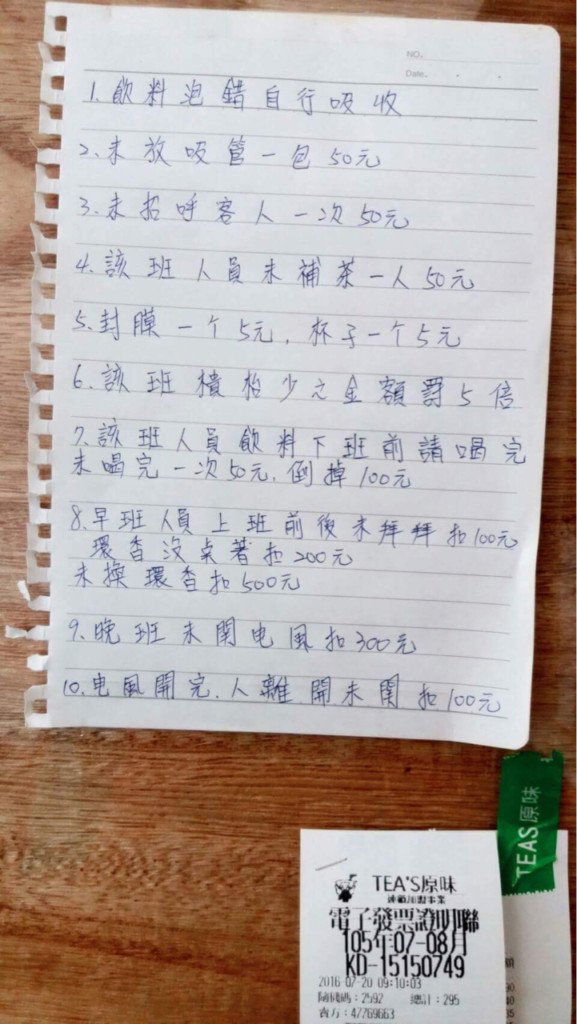 NO.
Date.
1.飲料泡錯自行吸收
2.未放吸管一包50元
3.未招呼客人一次50元
4.該班人員未補茶一人50元
5.封膜一个5元,杯子一个5元
6.該班櫃枱少之金額罰5倍
7.該班人員飲料下班前請喝完
未喝完一次50元.倒掉100元
8.早班人員上班前後未拜拜扣100元
環香沒点著扣200元
未換環香扣500元
9.晚班未関电風扣300元
10.电風開完.人離開未関扣100元
TEAS原味
TEA'S原味
連鎖加盟事業
電子發票證明聯
105年07-08月
KD-15150749
2016-07-20 09:10:03
隨機碼:2592 總計:295
賣方:47769663